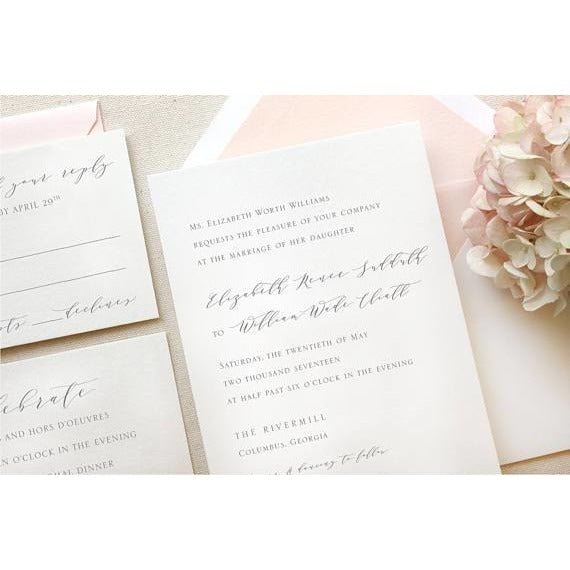 your reply
BY APRIL 29TH
declines
AND HORS D'OEUVRES
O'CLOCK IN THE EVENING
DINNER
Ms. Elizabeth Worth Williams
requests the pleasure of your company
at the marriage of her daughter
Elizabeth Renee Sudduth
to William Wade Cheatle
Saturday, the twentieth of May
two thousand seventeen
at half past six o'clock in the evening
THE RIVERMILL
Columbus, Georgia
& dancing to follow